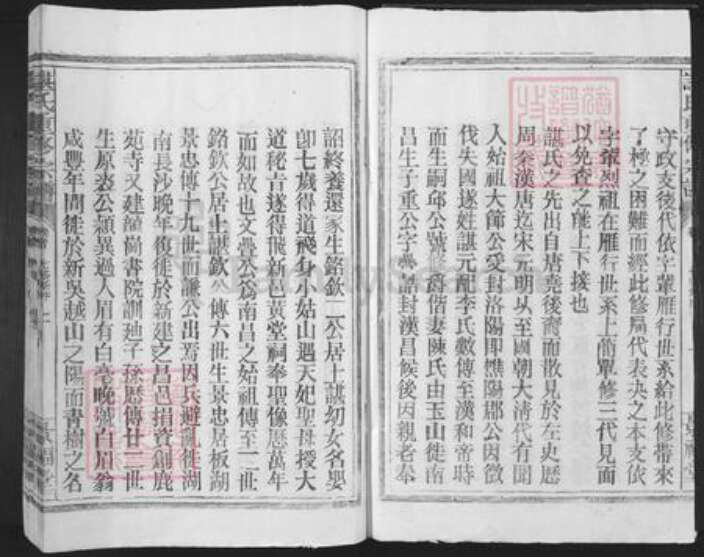 守政支後代依字輩雁行世系給此修帶來
了極之困難而經此修屬代表決之本支依
字輩烈祖在雁行世系上啇輩修三代見面
以免查之能上下接也
諶氏之先出自唐堯後裔而散見於左史歷
周秦漢唐迄宋元明以至國朝大清代有聞
人始祖大節公受封洛陽即樵陽郡公因徵
伐失國遂姓諶元配李氏數傳至漢和帝時
而生嗣邱公號脩爵偕妻陳氏由玉山徙南
昌生子重公字疊誥封漢昌候後因親老奉
詔終養還家生銘欽二公居上諶幼女名嬰
卽七歲得道飛身小姑山遇天妃聖母授大
道秘旨遂得飛新邑黃堂祠奉聖像歷萬年
而如故也文疊公爲南昌之始祖傳至二世
銘欽公居上諶欽公傳六世生景忠居板湖
景忠傳十九世而謙公出焉因兵避亂徙湖
南長沙晚年復徙於新建之昌邑捐資創鹿
苑寺又建韻尚書院訓廸子孫歷傳廿二世
生原裘公穎異過人眉有白毫晚號白眉翁
咸豐年間徙於新吳越山之陽面青樹之名
諶氏重修宗譜